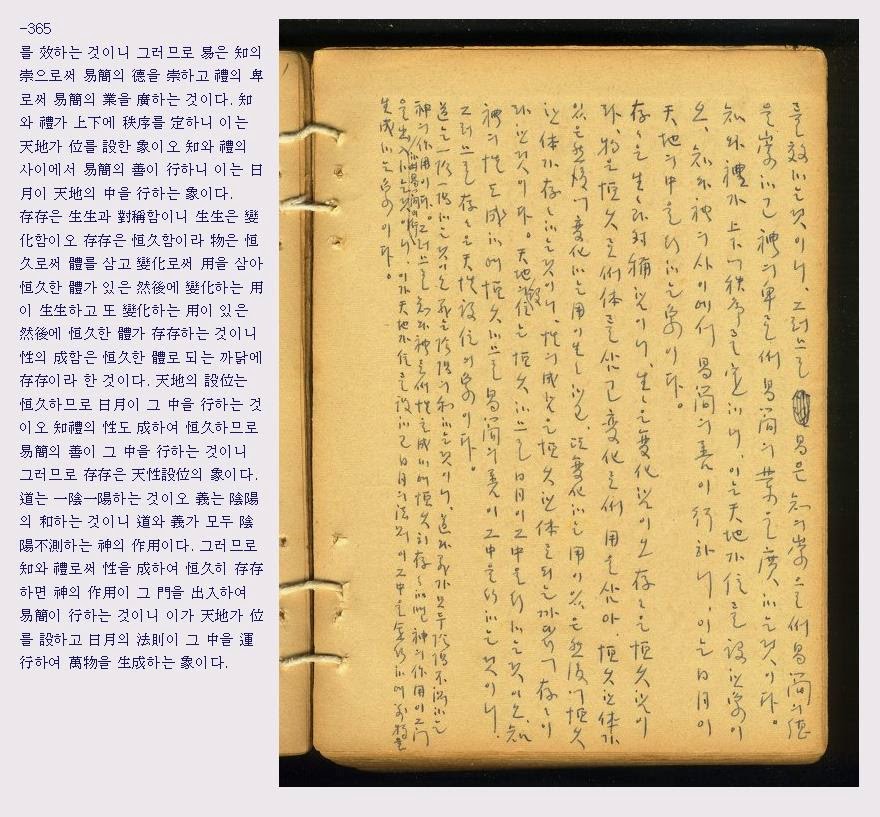 -365
를 效하는 것이니 그러므로 易은 知의
崇으로써 易簡의 德을 崇하고 禮의 卑
로써 易簡의 業을 廣하는 것이다. 知
와 禮가 上下에 秩序를 定하니 이는
天地가 位를 設한 象이오 知와 禮의
사이에서 易簡의 善이 行하니 이는 日
月이 天地의 中을 行하는 象이다.
存存은 生生과 對稱함이니 生生은 變
化함이오 存存은 恒久함이라 物은 恒
久로써 體를 삼고 變化로써 用을 삼아
恒久한 體가 있은 然後에 變化하는 用
이 生生하고 또 變化하는 用이 있은
然後에 恒久한 體가 存存하는 것이니
性의 成함은 恒久한 體로 되는 까닭에
存存이라 한 것이다. 天地의 設位는
恒久하므로 日月이 그 中을 行하는 것
이오 知禮의 性도 成하여 恒久하므로
易簡의 善이 그 中을 行하는 것이니
그러므로 存存은 天性設位의 象이다.
道는 一陰一陽하는 것이오 義는 陰陽
의 和하는 것이니 道와 義가 모두 陰
陽不測하는 神의 作用이다. 그러므로
知와 禮로써 性을 成하여 恒久히 存存
하면 神의 作用이 그 門을 出入하여
易簡이 行하는 것이니 이가 天地가 位
를 設하고 日月의 法則이 그 中을 運
行하여 萬物을 生成하는 象이다.
를 效하는 것이니, 그러므로 易은 知의 崇으로써 易簡의 德
을 崇하고 禮의 卑로써 易簡의 業을 廣하는 것이다.
知와 禮가 上下에 秩序를 定하니, 이는 天地가 位를 設한 象이
오, 知와 禮의 사이에서 易簡의 善이 行하니, 이는 日月이
天地의 中을 行하는 象이다.
存々은 生々과 對稱함이니, 生々은 変化함이오 存々은 恒久함이
라, 物은 恒久로써 体를 삼고 変化로써 用을 삼아, 恒久한 体가
있은 然後에 変化하는 用이 生々하고, 또 変化하는 用이 있은 然後에 恒久
한 体가 存々하는 것이니, 性의 成함은 恒久한 体로 되는 까닭에 存々이
라 한 것이다. 天地의 設位는 恒久하므로 日月이 그 中을 行하는 것이오, 知
禮의 性도 成하여 恒久하므로 易簡의 善이 그 中을 行하는 것이니,
그러므로 存々은 天性設位의 象이다.
道는 一陰一陽하는 것이오 義는 陰陽의 和하는 것이니, 道와 義가 모두 陰陽不測하는
神의 作用이다. 그러므로 知와 禮로써 性을 成하여 恒久히 存々하면 神의 作用이 그 門
을 出入하여 易簡이 行하는 것이니, 이가 天地가 位를 設하고 日月의 法則이 그 中을 運行하여 萬物을
生成하는 象이다.